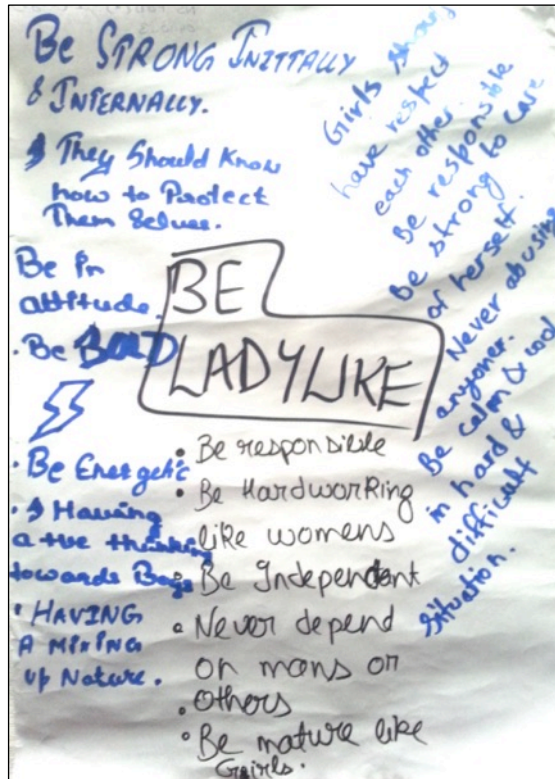 BE STRONG INITIALLY
& INTERNALLY.
They Should Know
how to Protect
Them Selves.
Be in
attitude.
• Be BOLD
• Be Energetic
• Having
a +ve thinking
towards Boys
• HAVING
A MIXING
UP Nature.
BE
LADYLIKE
• Be responsible
• Be Hardworking
like womens
• Be Independent
• Never depend
on mans or
• Others
• Be mature like
Gairls.
Girls should
have respect
each other.
Be responsible
Be strong to care
of herself.
Never abusing
anyoner.
Be calm & cool
in hard &
difficult
situation.